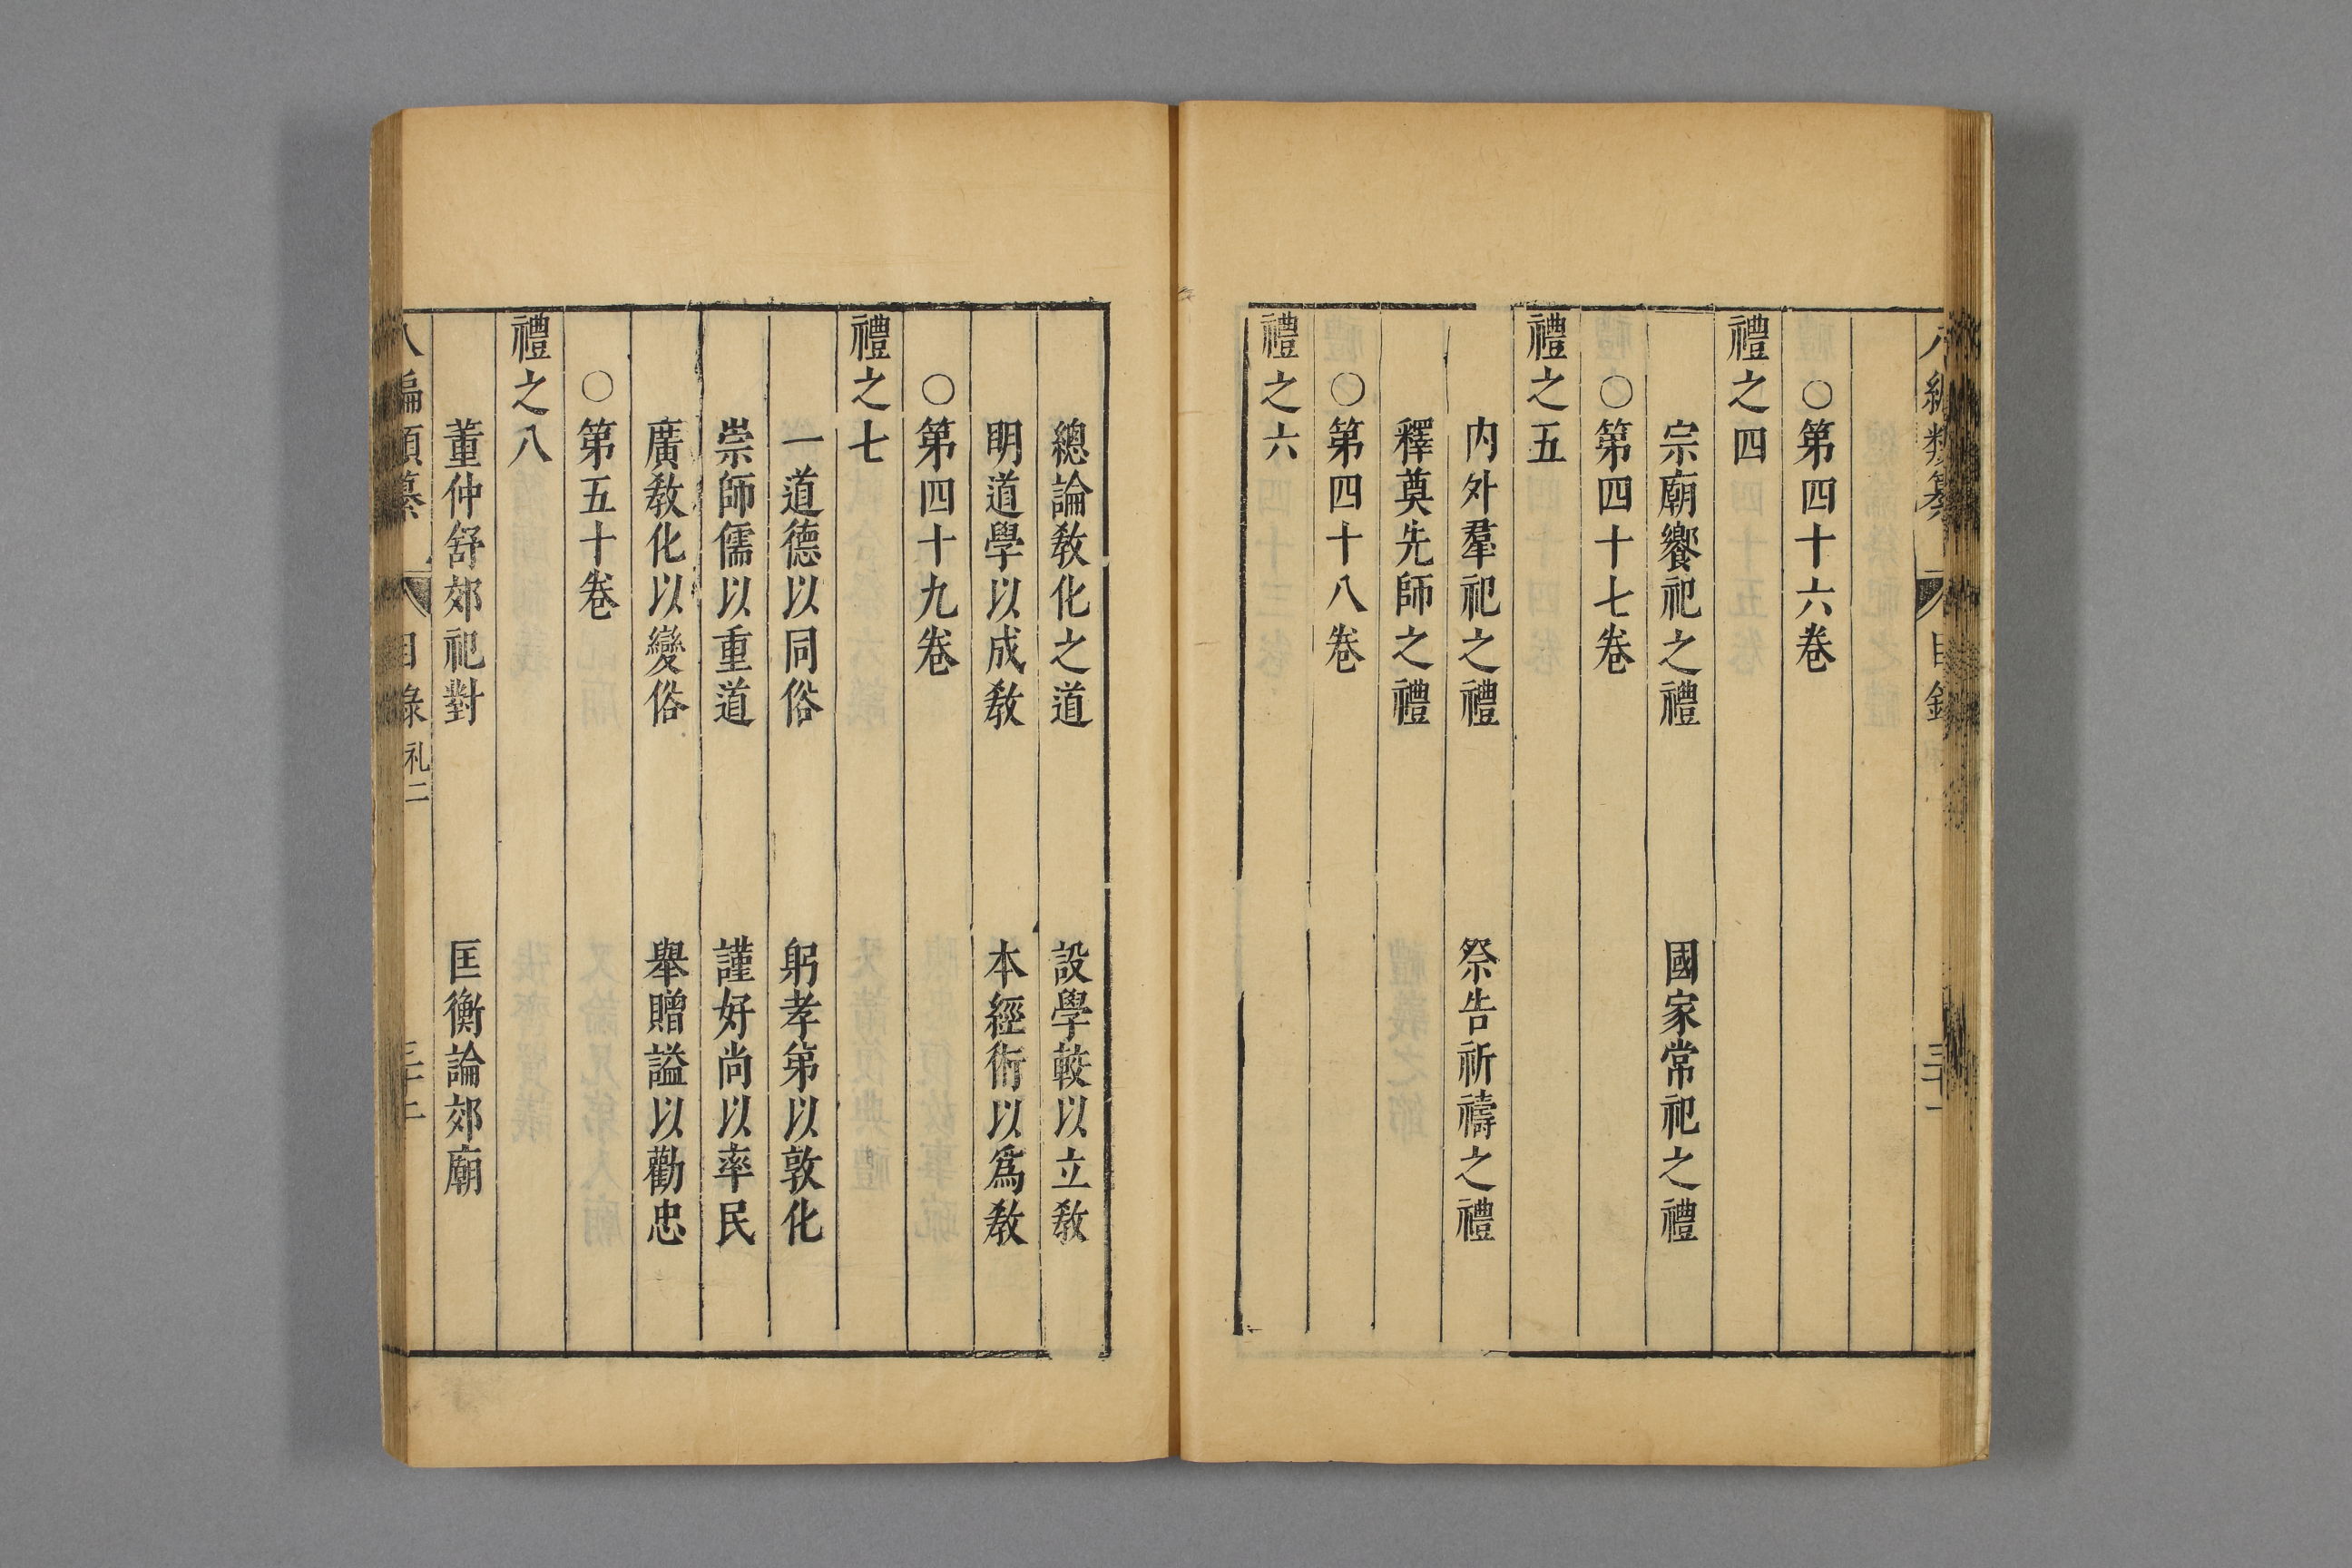 八編類纂 目錄
○第四十六卷
禮之四
宗廟饗祀之禮 國家常祀之禮
○第四十七卷
禮之五
内外羣祀之禮 祭告祈禱之禮
釋奠先師之禮
○第四十八卷
禮之六
總論敎化之道 設學較以立敎
明道學以成敎 本經術以爲敎
○第四十九卷
禮之七
一道德以同俗 躬孝弟以敦化
崇師儒以重道 謹好尚以率民
廣敎化以變俗 舉贈謚以勸忠
○第五十卷
禮之八
董仲舒郊祀對 匡衡論郊廟
八編類纂 目錄 礼二